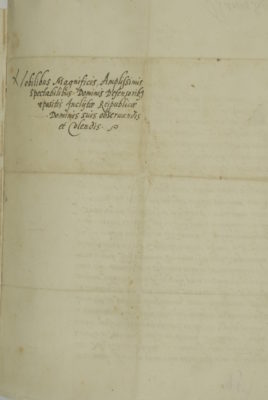 Nobilibus Magnificis Amplissimis
Spectabilibus Dominis Defensorib9
Inclytæ Reipublicæ
Dominis suis observandis
et Colendis.